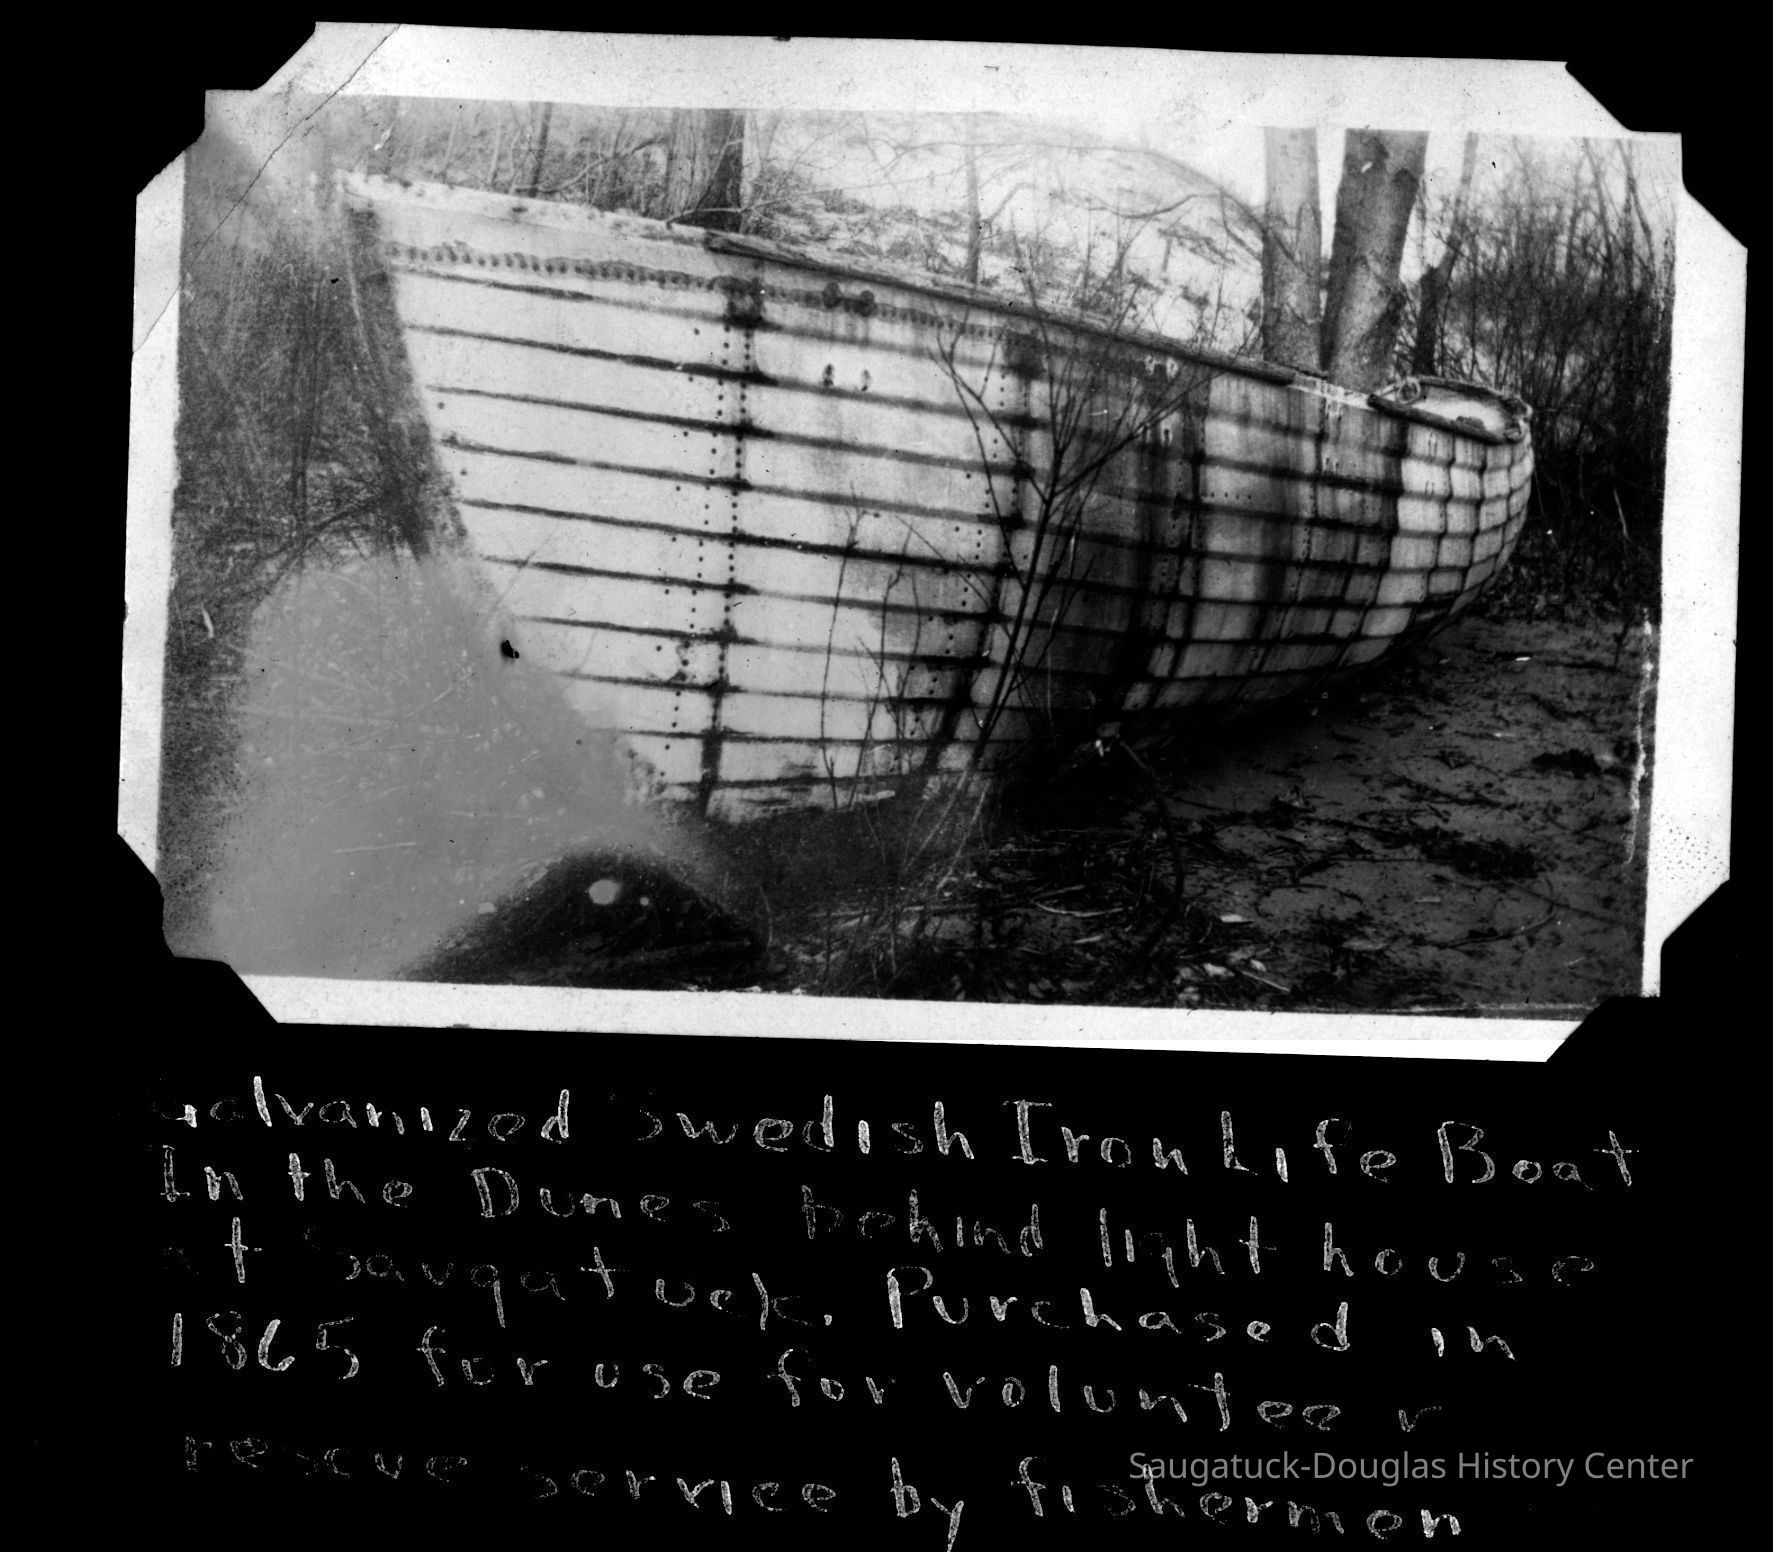 Galvanized Swedish Iron Life Boat
In the Dunes behind light house
at Saugatuck. Purchased in
1865 for use for volunteer
rescue service by fishermen
Saugatuck-Douglas History Center